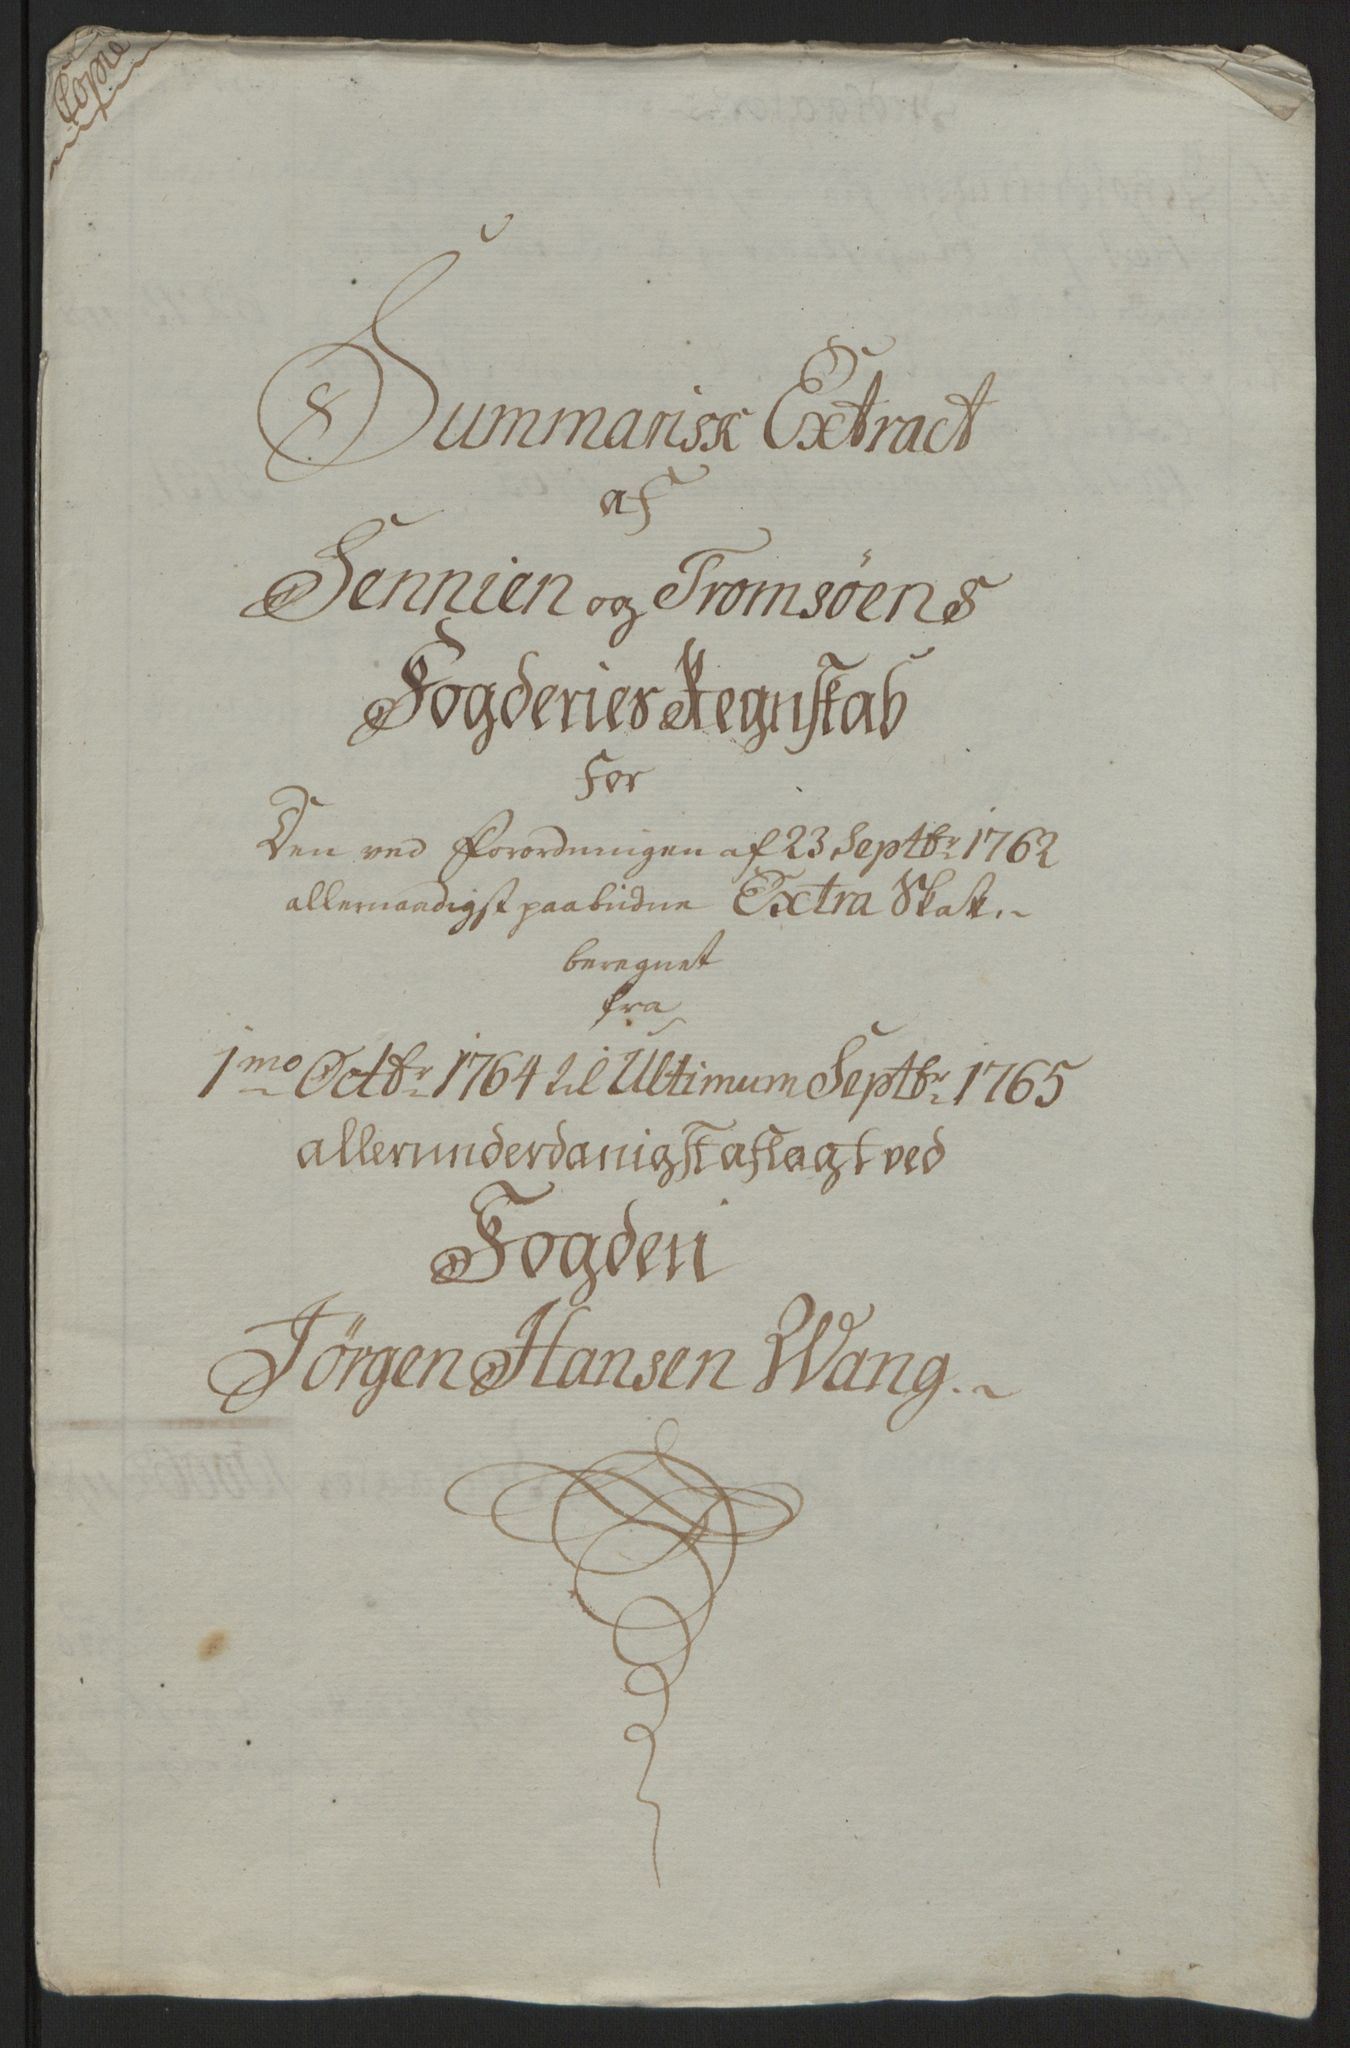 Copie
Summarisk Extract
af
Sennien og Tromsöens
Fogderies Regnskab
for
Den ved Forordningen af 23 Septbr 1762
allernaadigst paabudne Extra Skatt.
beregnet
fra
1mo Octbr 1764 til Ultimum Septbr 1765
allerunderdanigst aflagt ved
Fogden
Jörgen Hansen Wang.